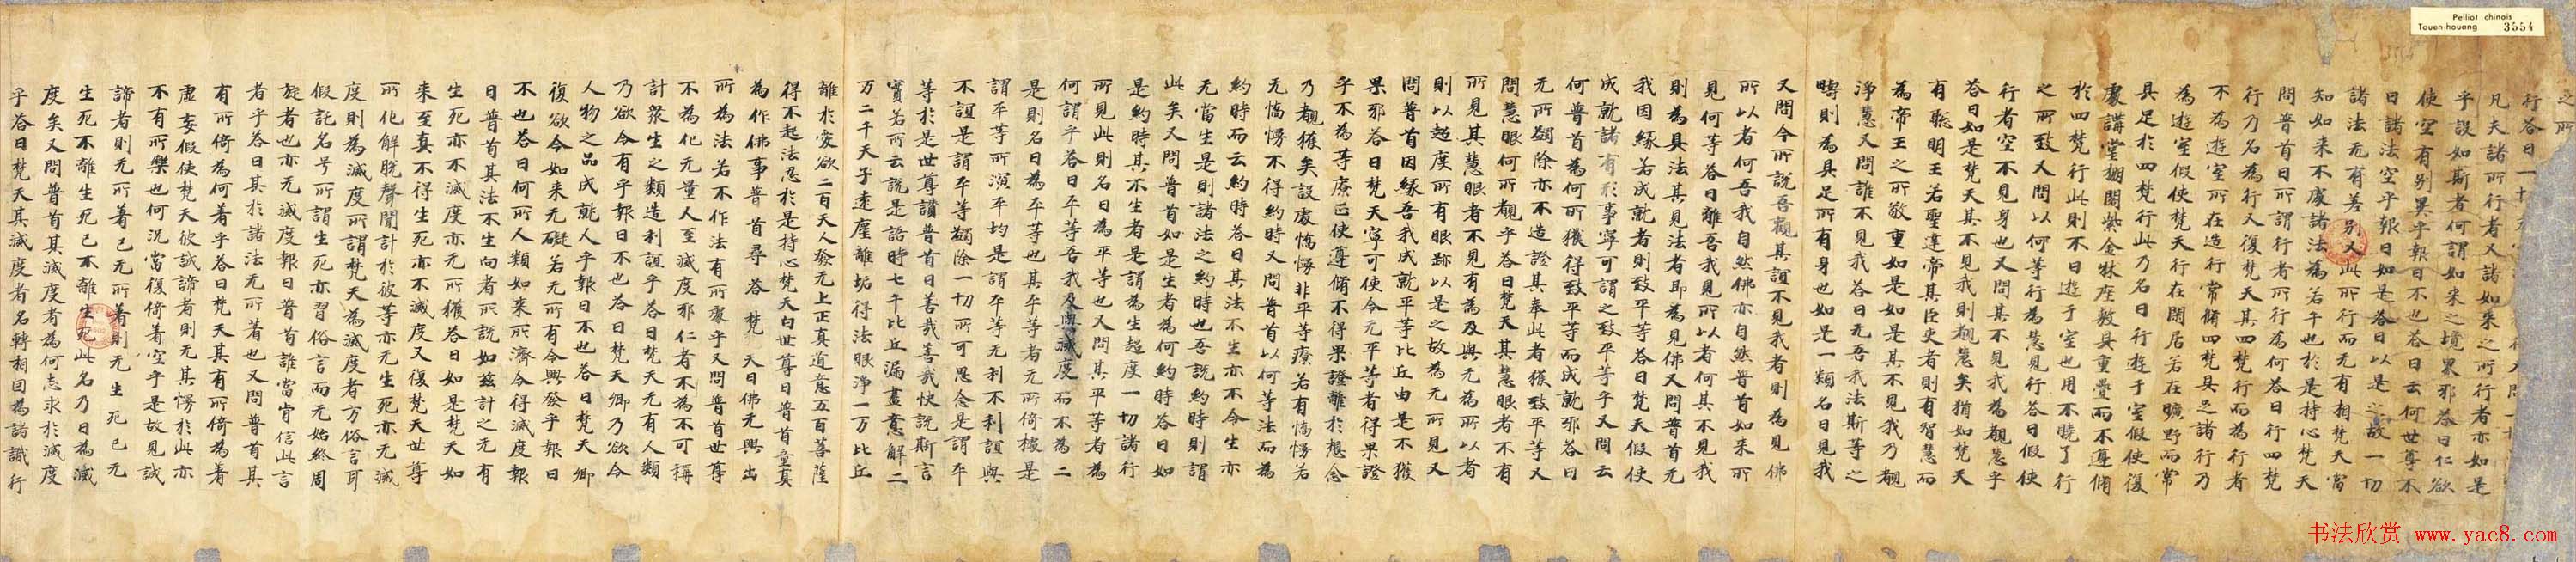 Pelliot chinois
Touen-houang 3554
之所
行答曰一切
凡夫諸所行者又諸如来之所行者亦如是
乎設如斯者何謂如来之境界邪答曰仁欲
使空有別異乎報曰不也答曰云何世尊不
曰諸法空乎報曰如是答曰以是之故一切
諸法无有差別又此所行而无有相梵天當
知如来不處諸法為若干也於是持心梵天
問普首曰所謂行者所行為何答曰行四梵
行乃名為行又復梵天其四梵行而為行者
不為遊室所在造行常脩四梵具足諸行乃
為遊室假使梵天行在閑居若在曠野而常
具足於四梵行此乃名曰行遊于室假使復
處講堂棚閣紫金牀座敷具重疊而不遵脩
於四梵行此則不曰遊于室也用不曉了行
之所致又問以何等行為慧見行答曰假使
行者空不見身也又問其不見我為覩慧乎
答曰如是梵天其不見我則覩慧矣猶如梵天
有聡明王若聖達帝其臣吏者則有智慧而
為帝王之所敬重如是如是其不見我乃覩
淨慧又問誰不見我答曰无吾我法斯等之
疇則為具足所有身也如是一類名曰見我
又問今所說吾觀其誼不見我者則為見佛
所以者何吾我自然佛亦自然普首如来所
見何等答曰離吾我見所以者何其不見我
則為具法其見法者即為見佛又問普首无
我因緣若成就者則致平等答曰梵天假使
成就諸有形事寧可謂之致平等乎又問云
何普首為何所獲得致平等而成就邪答曰
无所蠲除亦不造證其奉此者獲致平等又
問慧眼何所覩乎答曰梵天其慧眼者不有
所見其慧眼者不見有為及與无為所以者
則以超度所有眼跡以是之故為无所見又
問普首因緣吾我成就平等比丘由是不獲
果邪答曰梵天寧可使令无平等者得果證
乎不為等療正使遵脩不得果證離於想念
乃覩獲矣設處憍慢非平等療若有憍慢若
无憍慢不得約時又問普首以何等法而為
約時而云約時答曰其法不生亦不令生亦
无當生是則諸法之約時也吾說約時則謂
此矣又問普首如是生者為何約時答曰如
是約時其不生者是謂為生超度一切諸行
所見此則名曰為平等也又問其平等者為
何謂乎答曰平等吾我及與滅度而不為二
是則名曰為平等也其平等者无所倚據是
謂平等所演平均是謂平等无利不利誼與
不誼是謂平等蠲除一切所可思念是謂平
等於是世尊讚普首曰善哉善哉快說斯言
實若所云說是語時七千比丘漏盡意解二
万二千天子遠塵離垢得法眼淨一万比丘
離於愛欲二百天人發无上正真道意五百菩薩
得不起法忍於是持心梵天白世尊曰普首童真
為作佛事普首尋答梵天曰佛无興出
所為法若不作法有所處乎又問普首世尊
不為化无量人至滅度邪仁者不為不可稱
計衆生之類造利誼乎答曰梵天无有人類
乃欲令有乎報曰不也答曰梵天卿乃欲令
人物之品成就人乎報曰不也答曰梵天卿
復欲令如来无礙若无所有令興發乎報曰
不也答曰何所人類如来所濟令得滅度報
曰普首其法不生向者所說如茲計之无有
生死亦不滅度亦无所獲答曰如是梵天如
来至真不得生死亦不滅度又復梵天世尊
所化解脫聲聞計於彼等亦无生死亦无滅
度則為滅度所謂梵天為滅度者方俗言耳
假託名号所謂生死亦習俗言而无始終周
旋者也亦无滅度報曰普首誰當肯信此言
者乎答曰其於諸法无所著也又問普首其
有所倚為何著乎答曰梵天其有所倚為著
虛妄假使梵天彼誠諦者則无其慢於此亦
不有所樂也何況當復倚著空乎是故見誠
諦者則无所著已无所著則无生死已无
生死不離生死已不離生死此名乃曰為滅
度矣又問普首其滅度者為何志求於滅度
乎答曰梵天其滅度者名轉相因為諸識行
书法欣赏 www.yac8.com